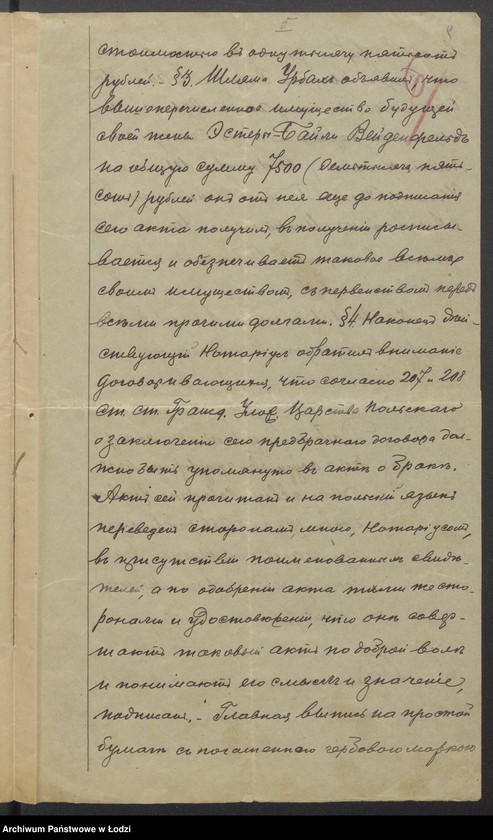 стоимостью въ одну тысячу пятьсотъ
рублей. - §3. Шляма Урбахъ объявилъ, что
вышеперечисленное имущество будущей
своей жены Эстеры-Байли Вейденфельдъ
на общую сумму 7500 (семь тысячъ пять-
сотъ) рублей онъ отъ нея еще до подписанія
сего акта получилъ, въ полученіи росписы-
вается и обезпечиваетъ таковое всѣмъ
своимъ имуществомъ, съ первенствомъ передъ
всѣми прочими долгами. §4. Наконецъ дѣй-
ствующій Нотаріусъ обратилъ вниманіе
договаривающихся, что согласно 207 и 208
ст. ст. Гражд. Улож. Царства Польскаго
о заключеніи сего предбрачнаго договора дол-
жно быть упомянуто въ актѣ о бракѣ.
Актъ сей прочитанъ и на польскій языкъ
переведенъ сторонамъ мною, Нотаріусомъ,
въ присутствіи поименованныхъ свидѣ-
телей, а по одобреніи акта тѣми же сто-
ронами и удостовѣреніи, что онѣ совер-
шаютъ таковый актъ по доброй волѣ
и понимаютъ его смыслъ и значеніе,
подписанъ. - Главная выпись на простой
бумагѣ съ погашенною гербовою маркою
Archiwum Państwowe w Łodzi